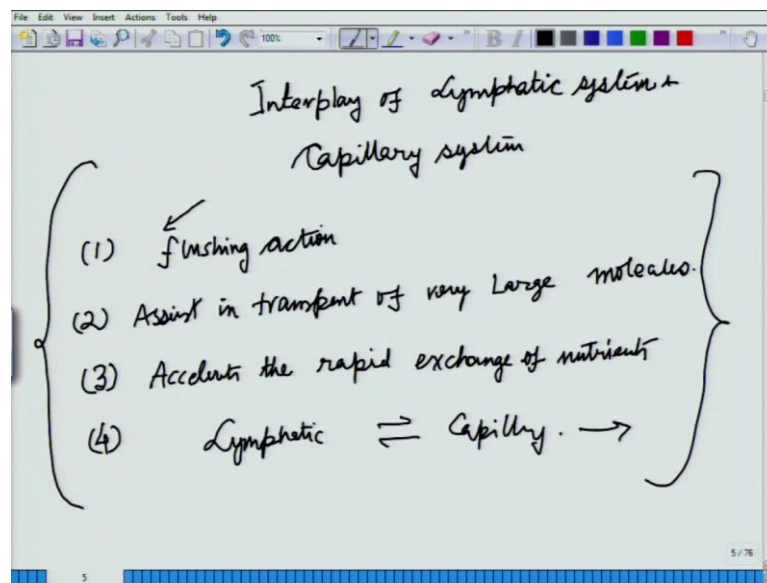 File Edit View Insert Actions Tools Help
100%
B I
Interplay of Lymphatic system +
Capillary system
(1) flushing action
(2) Assist in transport of very Large molecules.
(3) Accelerates the rapid exchange of nutrients
(4) Lymphatic ⇌ Capillary. →
5 / 76
5